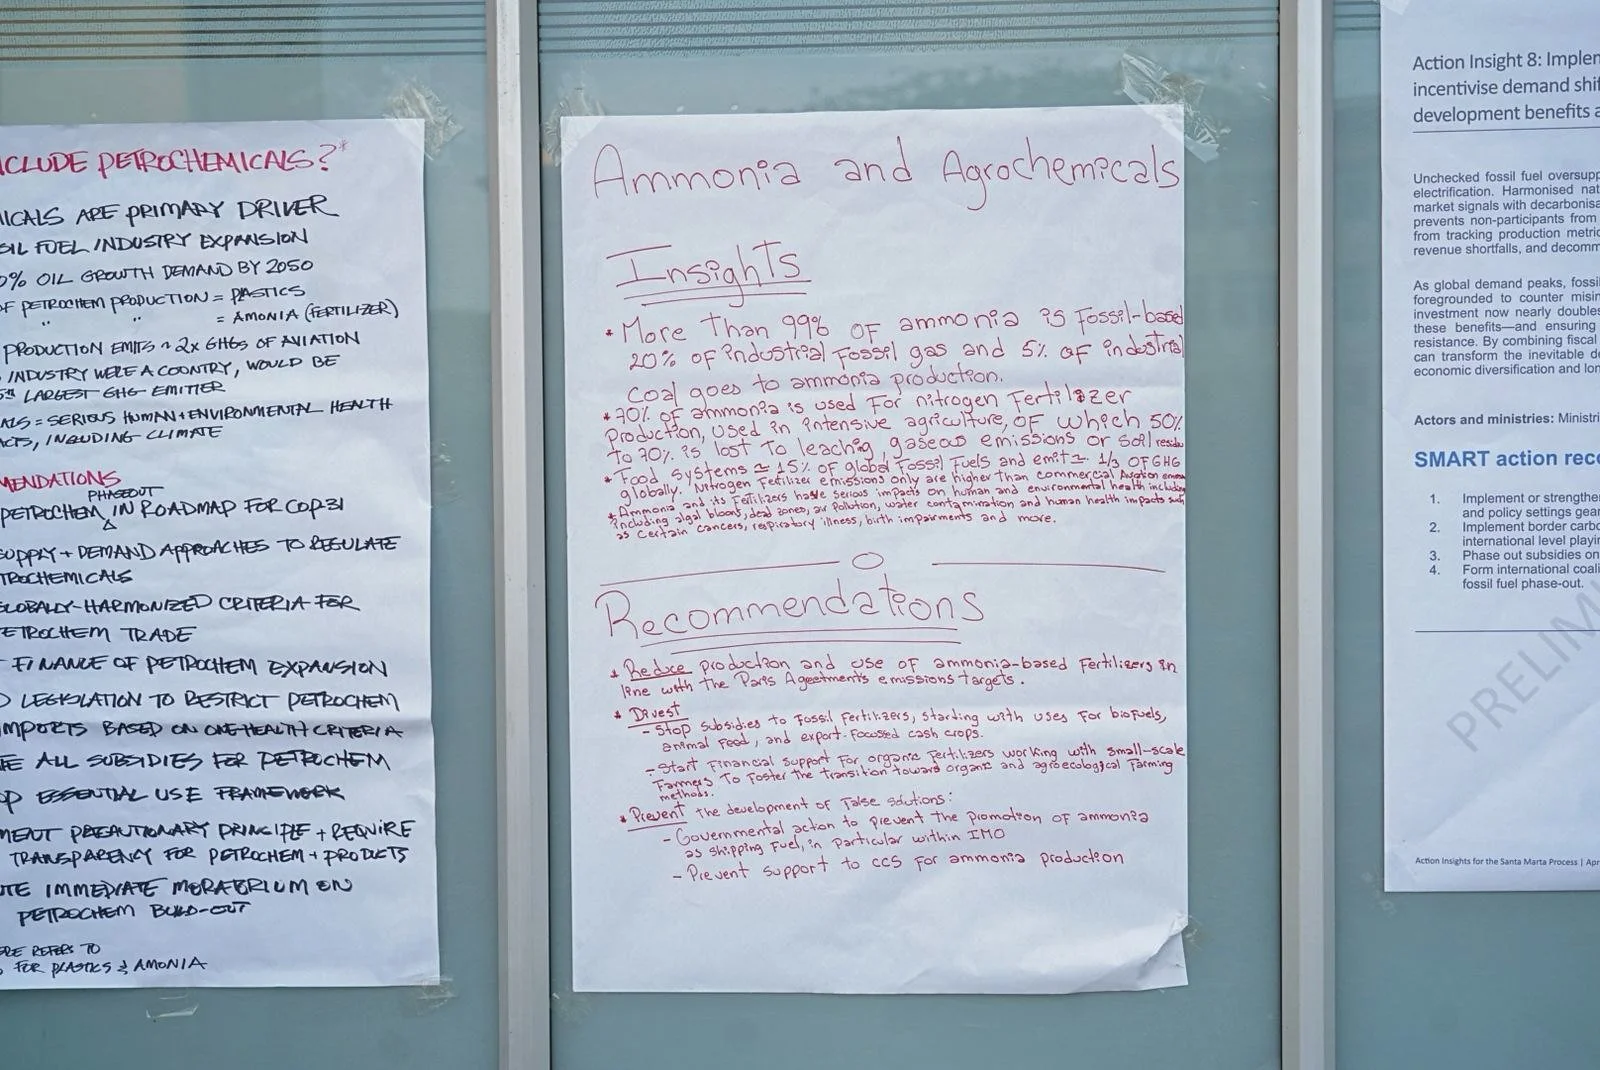 CLUDE PETROCHEMICALS?*
ICALS ARE PRIMARY DRIVER
SIL FUEL INDUSTRY EXPANSION
0% OIL GROWTH DEMAND BY 2050
OF PETROCHEM PRODUCTION = PLASTICS
" " = AMONIA (FERTILIZER)
PRODUCTION EMITS ~ 2x GHGs OF AVIATION
INDUSTRY WERE A COUNTRY, WOULD BE
5th LARGEST GHG EMITTER
ALS = SERIOUS HUMAN + ENVIRONMENTAL HEALTH
ACTS, INCLUDING CLIMATE
MENDATIONS
PHASEOUT
PETROCHEM IN ROADMAP FOR COP31
SUPPLY + DEMAND APPROACHES TO REGULATE
TROCHEMICALS
GLOBALLY-HARMONIZED CRITERIA FOR
ETROCHEM TRADE
FINANCE OF PETROCHEM EXPANSION
D LEGISLATION TO RESTRICT PETROCHEM
IMPORTS BASED ON ONE HEALTH CRITERIA
TE ALL SUBSIDIES FOR PETROCHEM
OP ESSENTIAL USE FRAMEWORK
MENT PRECAUTIONARY PRINCIPLE + REQUIRE
TRANSPARENCY FOR PETROCHEM + PRODUCTS
UTE IMMEDIATE MORATORIUM ON
PETROCHEM BUILD-OUT
ERE REFERS TO
FOR PLASTICS & AMONIA
Ammonia and Agrochemicals
Insights
* More than 99% of ammonia is fossil-based
20% of industrial fossil gas and 5% of industrial
coal goes to ammonia production.
* 70% of ammonia is used for nitrogen fertilizer
production, used in intensive agriculture, of which 50%
to 70% is lost to leaching, gaseous emissions or soil residu
* Food systems ≃ 15% of global fossil fuels and emit ≃ 1/3 of GHG
globally. Nitrogen fertilizer emissions only are higher than commercial Aviation emiss
* Ammonia and its fertilizers have serious impacts on human and environmental health including
including algal blooms, dead zones, air pollution, water contamination and human health impacts such
as certain cancers, respiratory illness, birth impairments and more.
Recommendations
* Reduce production and use of ammonia-based fertilizers in
line with the Paris Agreetment's emissions targets.
* Divest
- Stop subsidies to fossil fertilizers, starting with uses for biofuels,
animal feed, and export-focused cash crops.
- Start financial support for organic fertilizers working with small-scale
farmers to foster the transition toward organic and agroecological farming
methods.
* Prevent the development of false solutions:
- Governmental action to prevent the promotion of ammonia
as shipping fuel, in particular within IMO
- Prevent support to CCS for ammonia production
Action Insight 8: Implem
incentivise demand shif
development benefits a
Unchecked fossil fuel oversupp
electrification. Harmonised nat
market signals with decarbonisa
prevents non-participants from
from tracking production metric
revenue shortfalls, and decomm
As global demand peaks, fossil
foregrounded to counter misin
investment now nearly doubles
these benefits—and ensuring
resistance. By combining fiscal
can transform the inevitable de
economic diversification and lon
Actors and ministries: Ministri
SMART action reco
1. Implement or strengthe
and policy settings gear
2. Implement border carbo
international level playin
3. Phase out subsidies on
4. Form international coali
fossil fuel phase-out.
PRELIM
Action Insights for the Santa Marta Process | Apr